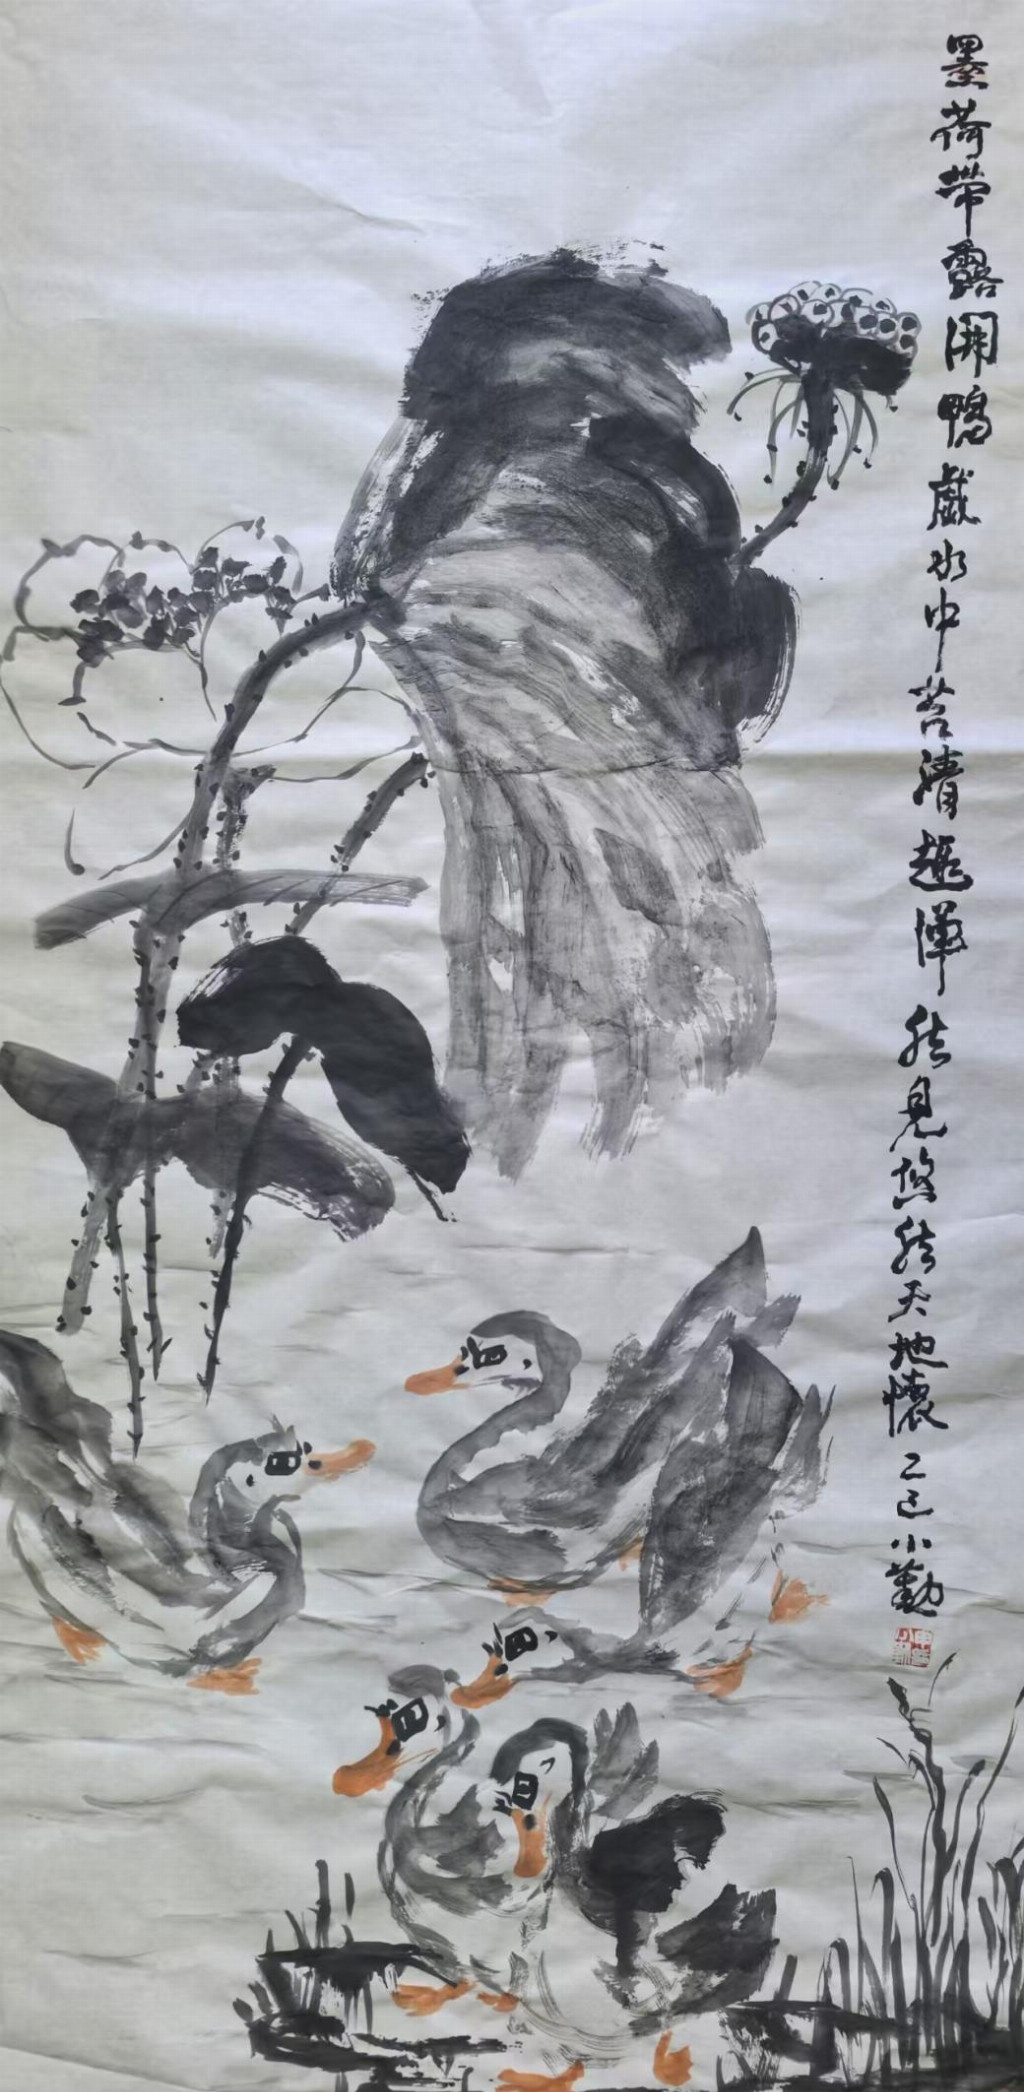 墨荷带露開鴨戲水中苔清趣渾然見悠然天地懷乙巳小勤